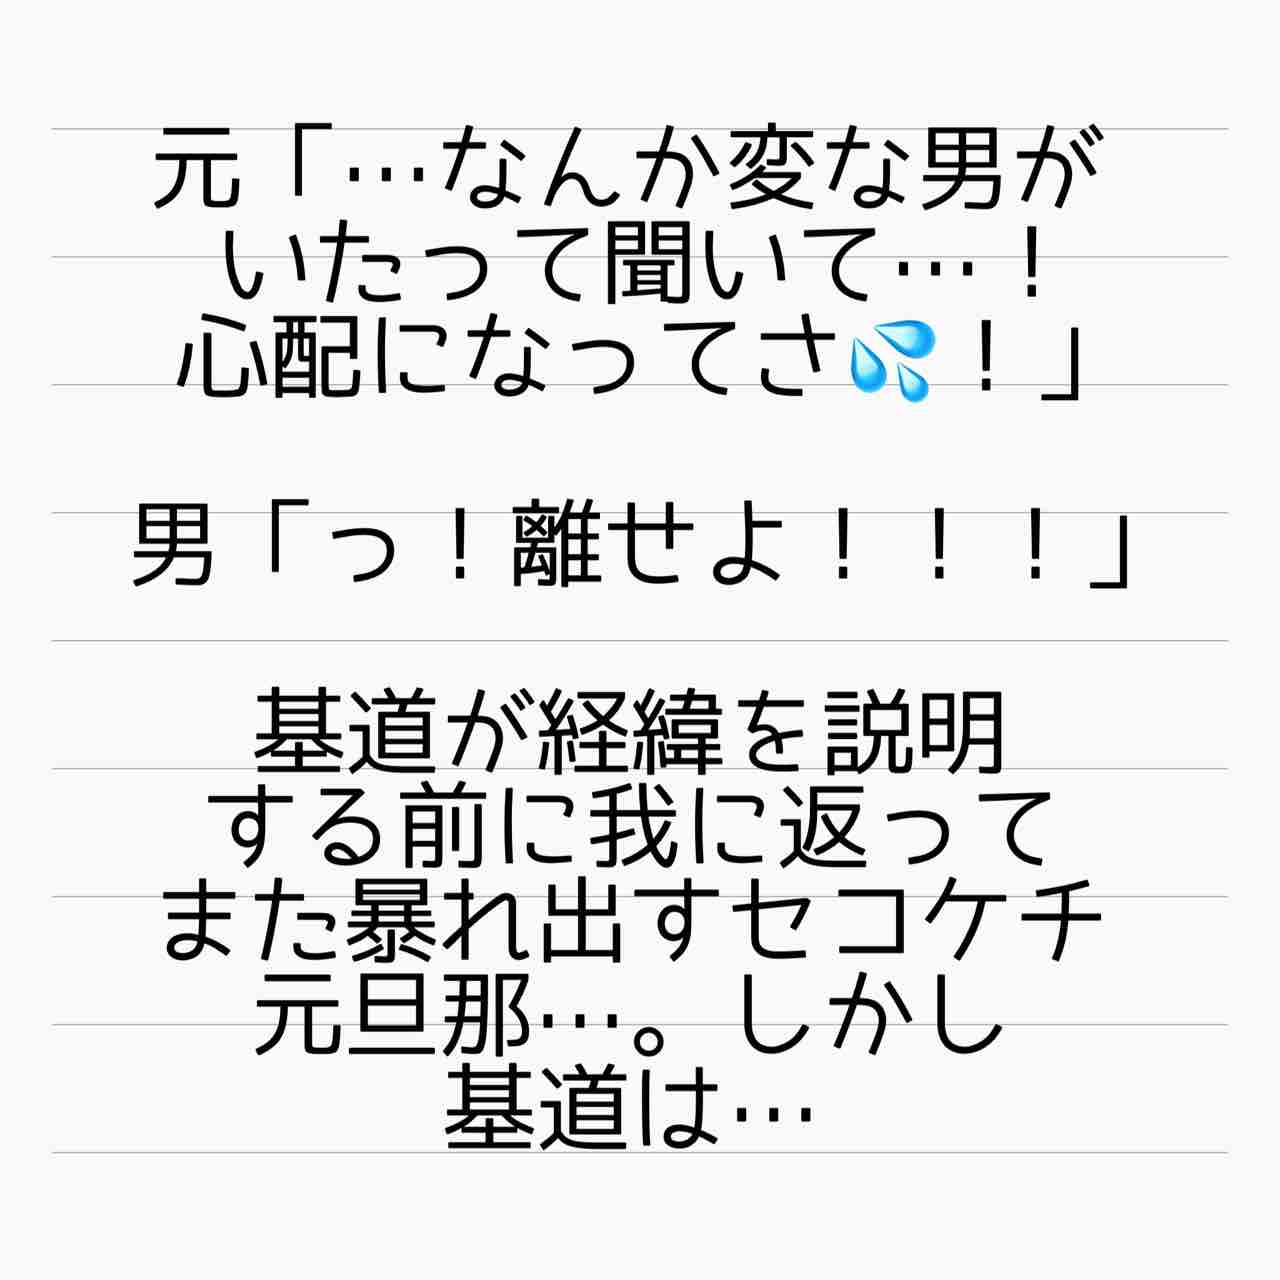 元「…なんか変な男が
いたって聞いて…！
心配になってさ💦！」
男「っ！離せよ！！！」
基道が経緯を説明
する前に我に返って
また暴れ出すセコケチ
元旦那…。しかし
基道は…